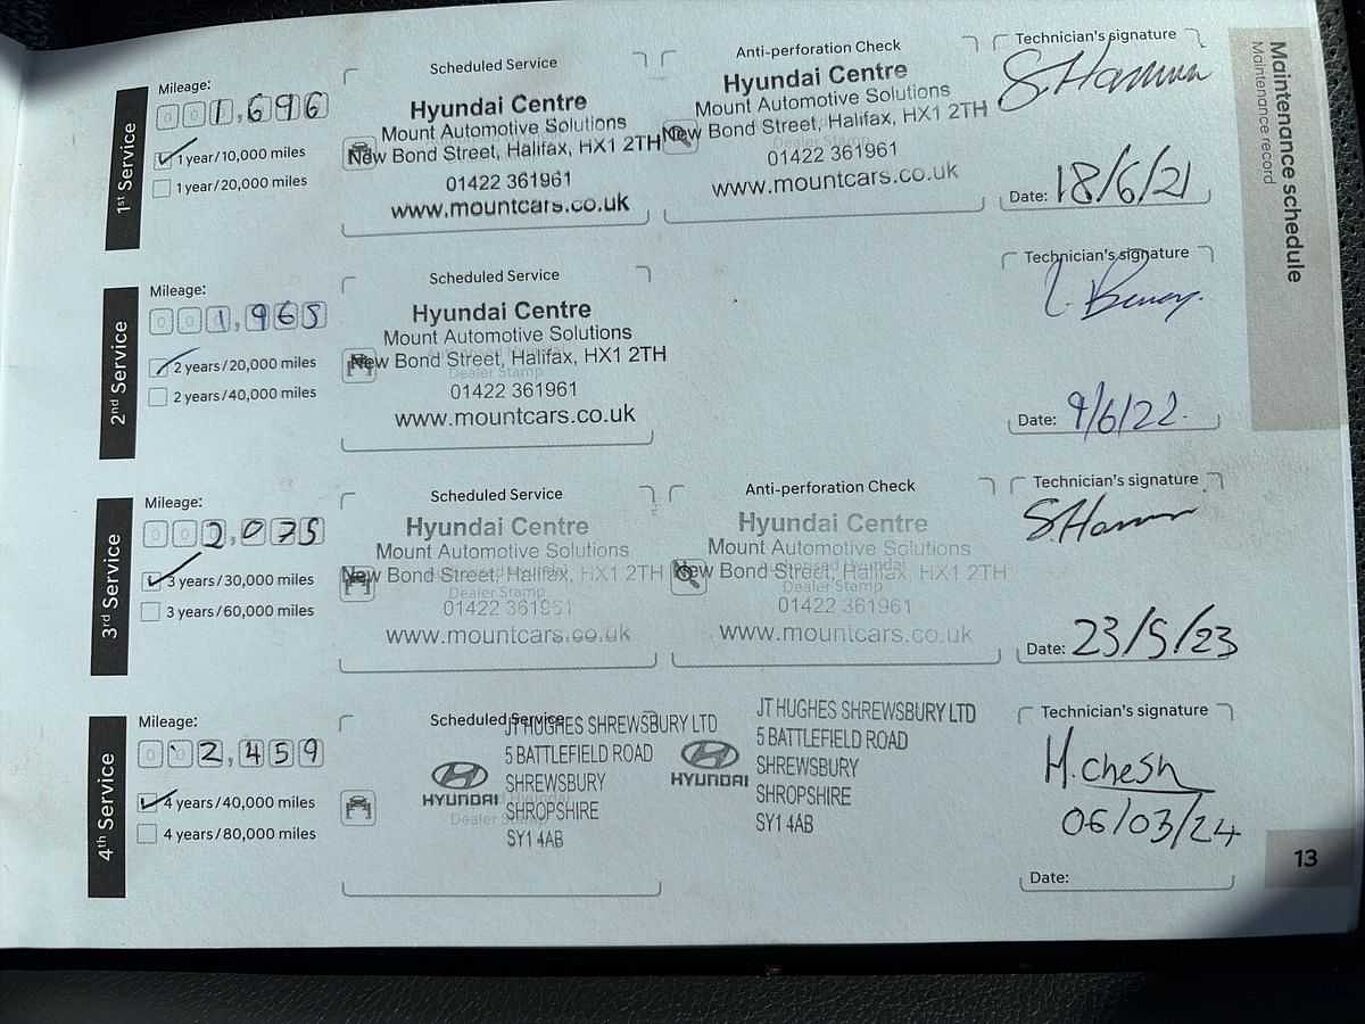 Maintenance schedule
Maintenance record
1st Service
Mileage:
001,696
1 year/10,000 miles
1 year/20,000 miles
Scheduled Service
Hyundai Centre
Mount Automotive Solutions
New Bond Street, Halifax, HX1 2TH
01422 361961
www.mountcars.co.uk
Anti-perforation Check
Hyundai Centre
Mount Automotive Solutions
New Bond Street, Halifax, HX1 2TH
01422 361961
www.mountcars.co.uk
Technician's signature
Date: 18/6/21
2nd Service
Mileage:
001,965
2 years/20,000 miles
2 years/40,000 miles
Scheduled Service
Hyundai Centre
Mount Automotive Solutions
New Bond Street, Halifax, HX1 2TH
Dealer Stamp
01422 361961
www.mountcars.co.uk
Technician's signature
Date: 9/6/22.
3rd Service
Mileage:
002,075
3 years/30,000 miles
3 years/60,000 miles
Scheduled Service
Hyundai Centre
Mount Automotive Solutions
New Bond Street, Halifax, HX1 2TH
Dealer Stamp
01422 361961
www.mountcars.co.uk
Anti-perforation Check
Hyundai Centre
Mount Automotive Solutions
New Bond Street, Halifax, HX1 2TH
Dealer Stamp
01422 361961
www.mountcars.co.uk
Technician's signature
Date: 23/5/23
4th Service
Mileage:
002,459
4 years/40,000 miles
4 years/80,000 miles
Scheduled Service
JT HUGHES SHREWSBURY LTD
5 BATTLEFIELD ROAD
SHREWSBURY
HYUNDAI
SHROPSHIRE
Dealer
SY1 4AB
JT HUGHES SHREWSBURY LTD
5 BATTLEFIELD ROAD
SHREWSBURY
HYUNDAI
SHROPSHIRE
SY1 4AB
Technician's signature
H.chesh
06/03/24
Date:
13